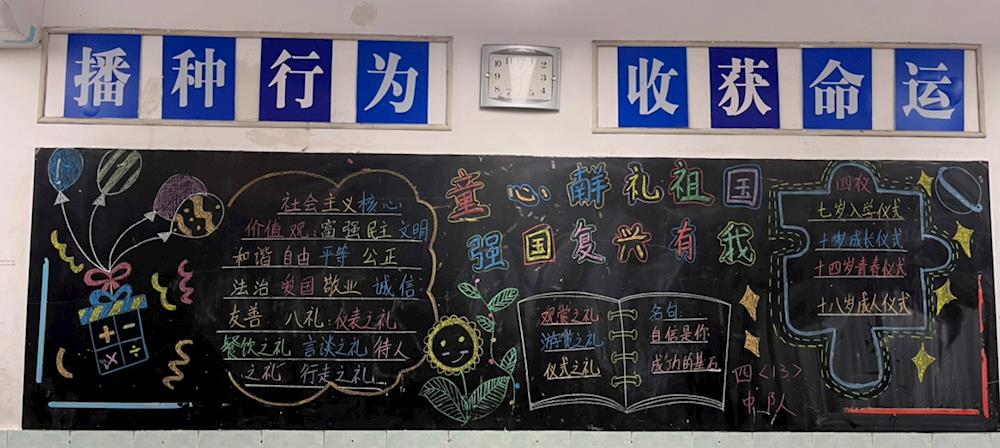 播种行为
收获命运
社会主义核心
价值观:富强民主文明
和谐自由平等公正
法治爱国敬业诚信
友善 八礼:仪表之礼
餐饮之礼 言谈之礼 待人
之礼 行走之礼...
童心献礼祖国
强国复兴有我
观赏之礼
游览之礼
仪式之礼
名句:
自信是你
成功的基石
四<13>
中队
四仪
七岁入学仪式
十岁成长仪式
十四岁青春仪式
十八岁成人仪式